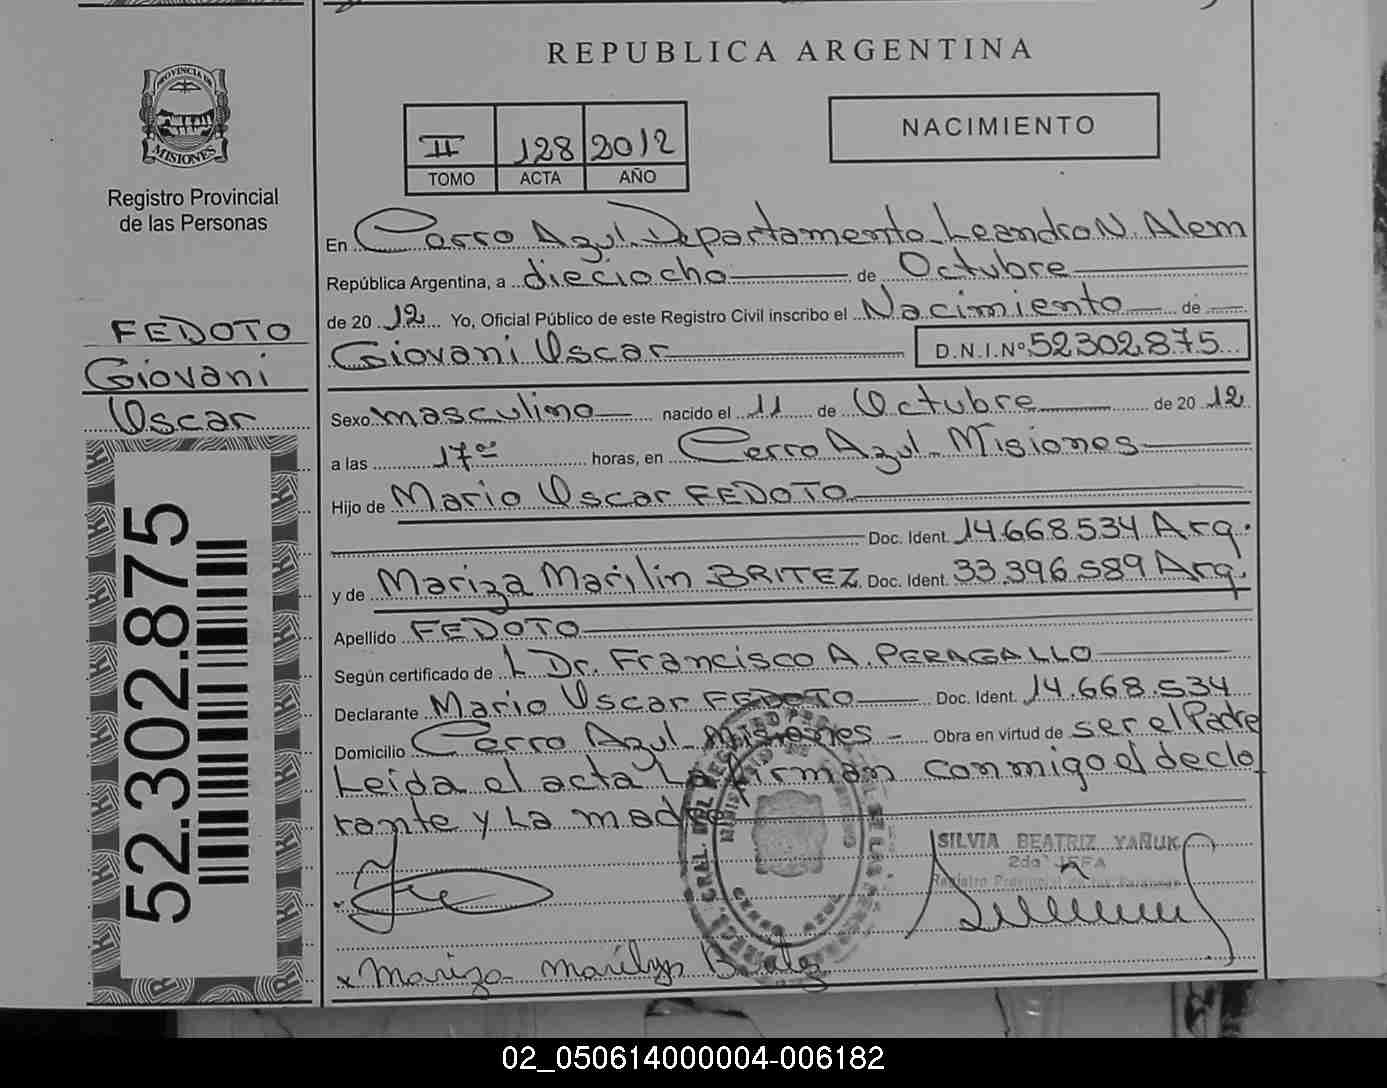 REPUBLICA ARGENTINA
PROVINCIA DE
MISIONES
Registro Provincial
de las Personas
II 128 2012
TOMO ACTA AÑO
NACIMIENTO
FEDOTO
Giovani
Oscar
52.302.875
En Cerro Azul Departamento Leandro N. Alem
República Argentina, a dieciocho de Octubre
de 20 12 Yo, Oficial Público de este Registro Civil inscribo el Nacimiento de
Giovani Oscar D.N.I.Nº 52302875
Sexo masculino nacido el 11 de Octubre de 20 12
a las 17 horas, en Cerro Azul - Misiones
Hijo de Mario Oscar FEDOTO
Doc. Ident. 14.668.534 Arg.
y de Mariza Marilin BRITEZ Doc. Ident. 33.396.589 Arg.
Apellido FEDOTO
Según certificado de L Dr. Francisco A. PERAGALLO
Declarante Mario Oscar FEDOTO Doc. Ident. 14.668.534
Domicilio Cerro Azul - Misiones - Obra en virtud de ser el Padre
Leida el acta La firman conmigo el decla
rante y La madre
SILVIA BEATRIZ YAÑUK
2da JEFA
Registro Provincial de las Personas
x Mariza Marilyn
02_050614000004-006182